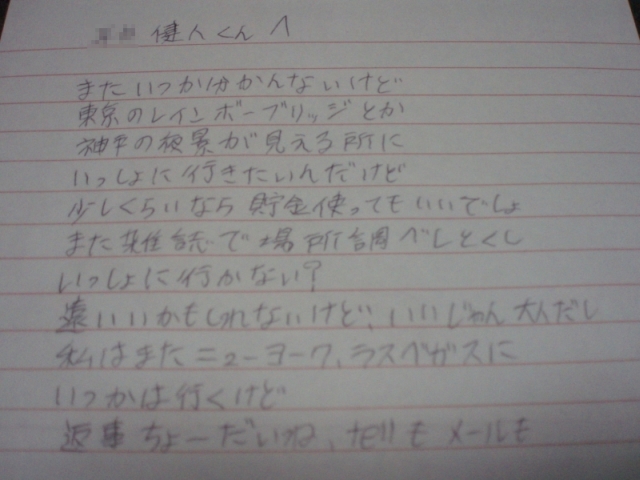 健人くんへ
またいつか分かんないけど
東京のレインボーブリッジとか
神戸の夜景が見える所に
いっしょに行きたいんだけど
少しくらいなら貯金使ってもいいでしょ
また雑誌で場所調べしとくし
いっしょに行かない?
遠いいかもしれないけど、いいじゃん大人だし
私はまたニューヨーク、ラスベガスに
いつかは行くけど
返事ちょーだいね、telもメールも